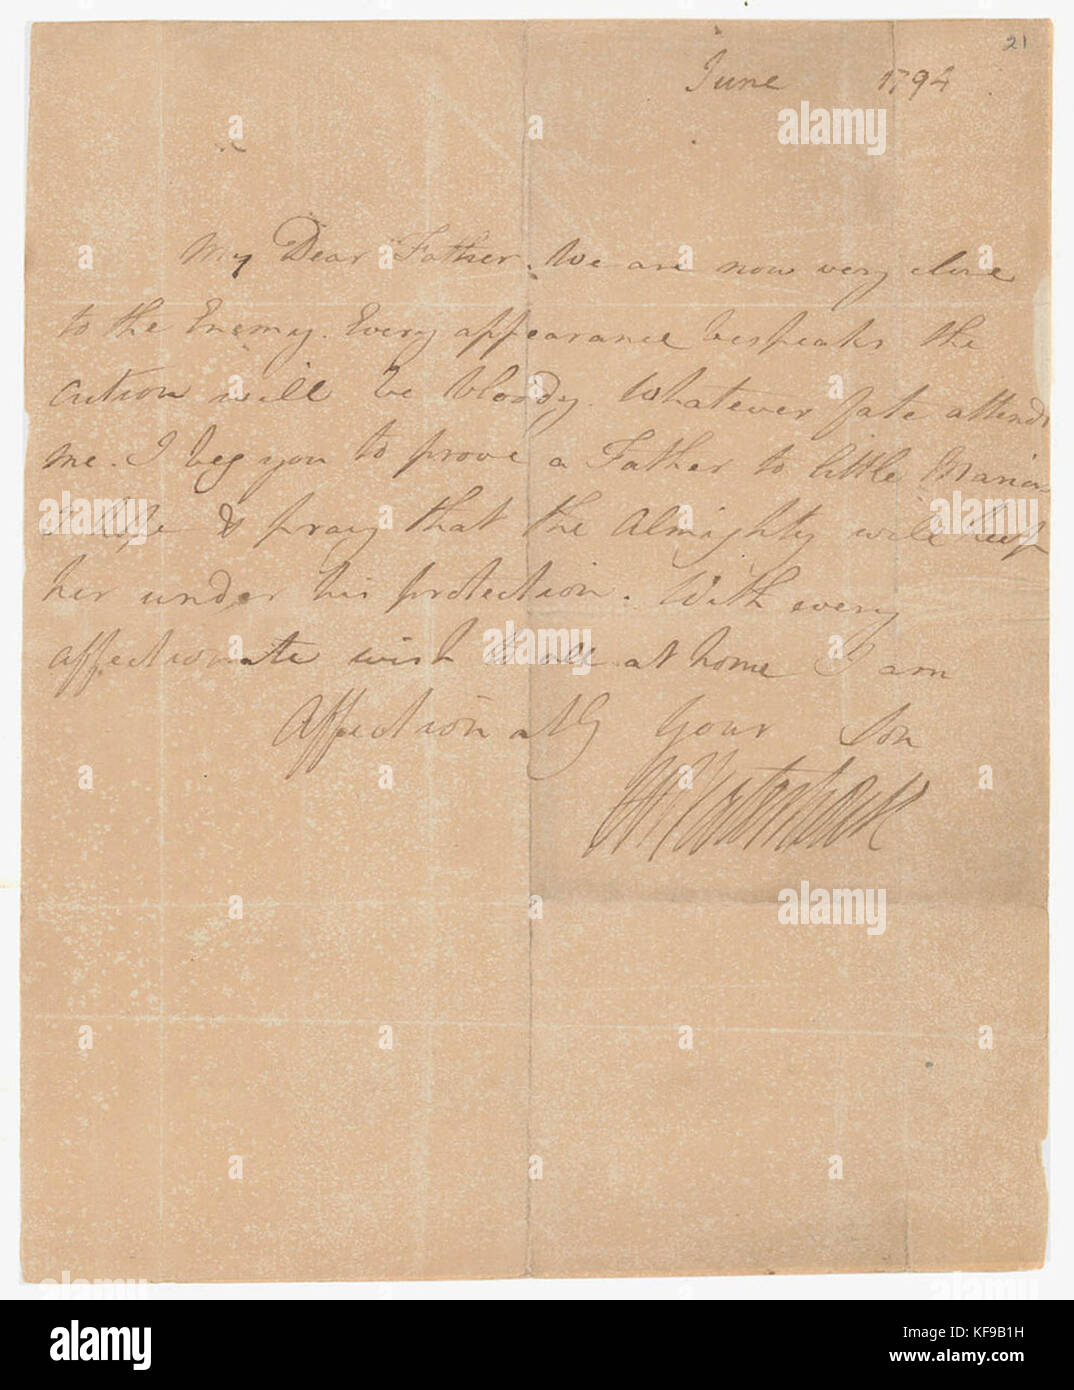 21
June 1794
My Dear Father. We are now very close
to the Enemy. Every appearance bespeaks the
action will be bloody. Whatever fate attends
me. I beg you to prove a Father to little Maria
I hope & pray that the Almighty will keep
her under his protection. With every
affectionate wish to all at home I am
Affectionatly Your Son
alamy
Image ID: KF9B1H
www.alamy.com